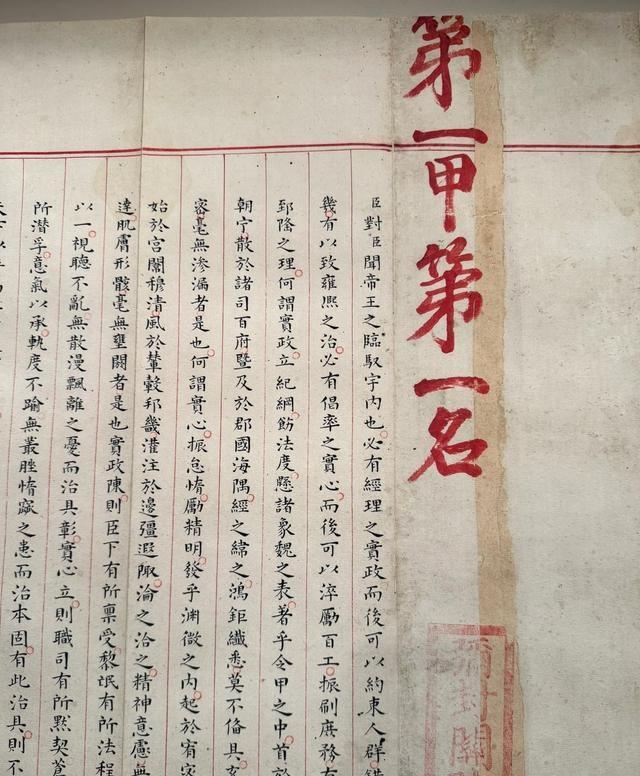 第一甲第一名
臣對臣聞帝王之臨馭宇内也必有經理之實政而後可以約束人群錯
幾有以致雍熙之治必有倡率之實心而後可以淬勵百工振刷庶務有
郅隆之理何謂實政立紀綱飭法度懸諸象魏之表著乎令甲之中首於
朝宁散於諸司百府暨及於郡國海隅經之緯之鴻鉅纖悉莫不俻具
密毫無滲漏者是也何謂實心振怠惰勵精明發乎淵微之内起於宥密
始於宮闈穆清風於輦轂邦畿灌注於邊疆遐陬淪之洽之精神意慮無
達肌膚形骸毫無壅閼者是也實政陳則臣下有所禀受黎氓有所法程
以一視聽不亂無散漫飄離之憂而治具彰實心立則職司有所默契蒼
所潛孚意氣以承軌度不踰無叢脞惰窳之患而治本固有此治具則不
彌封關